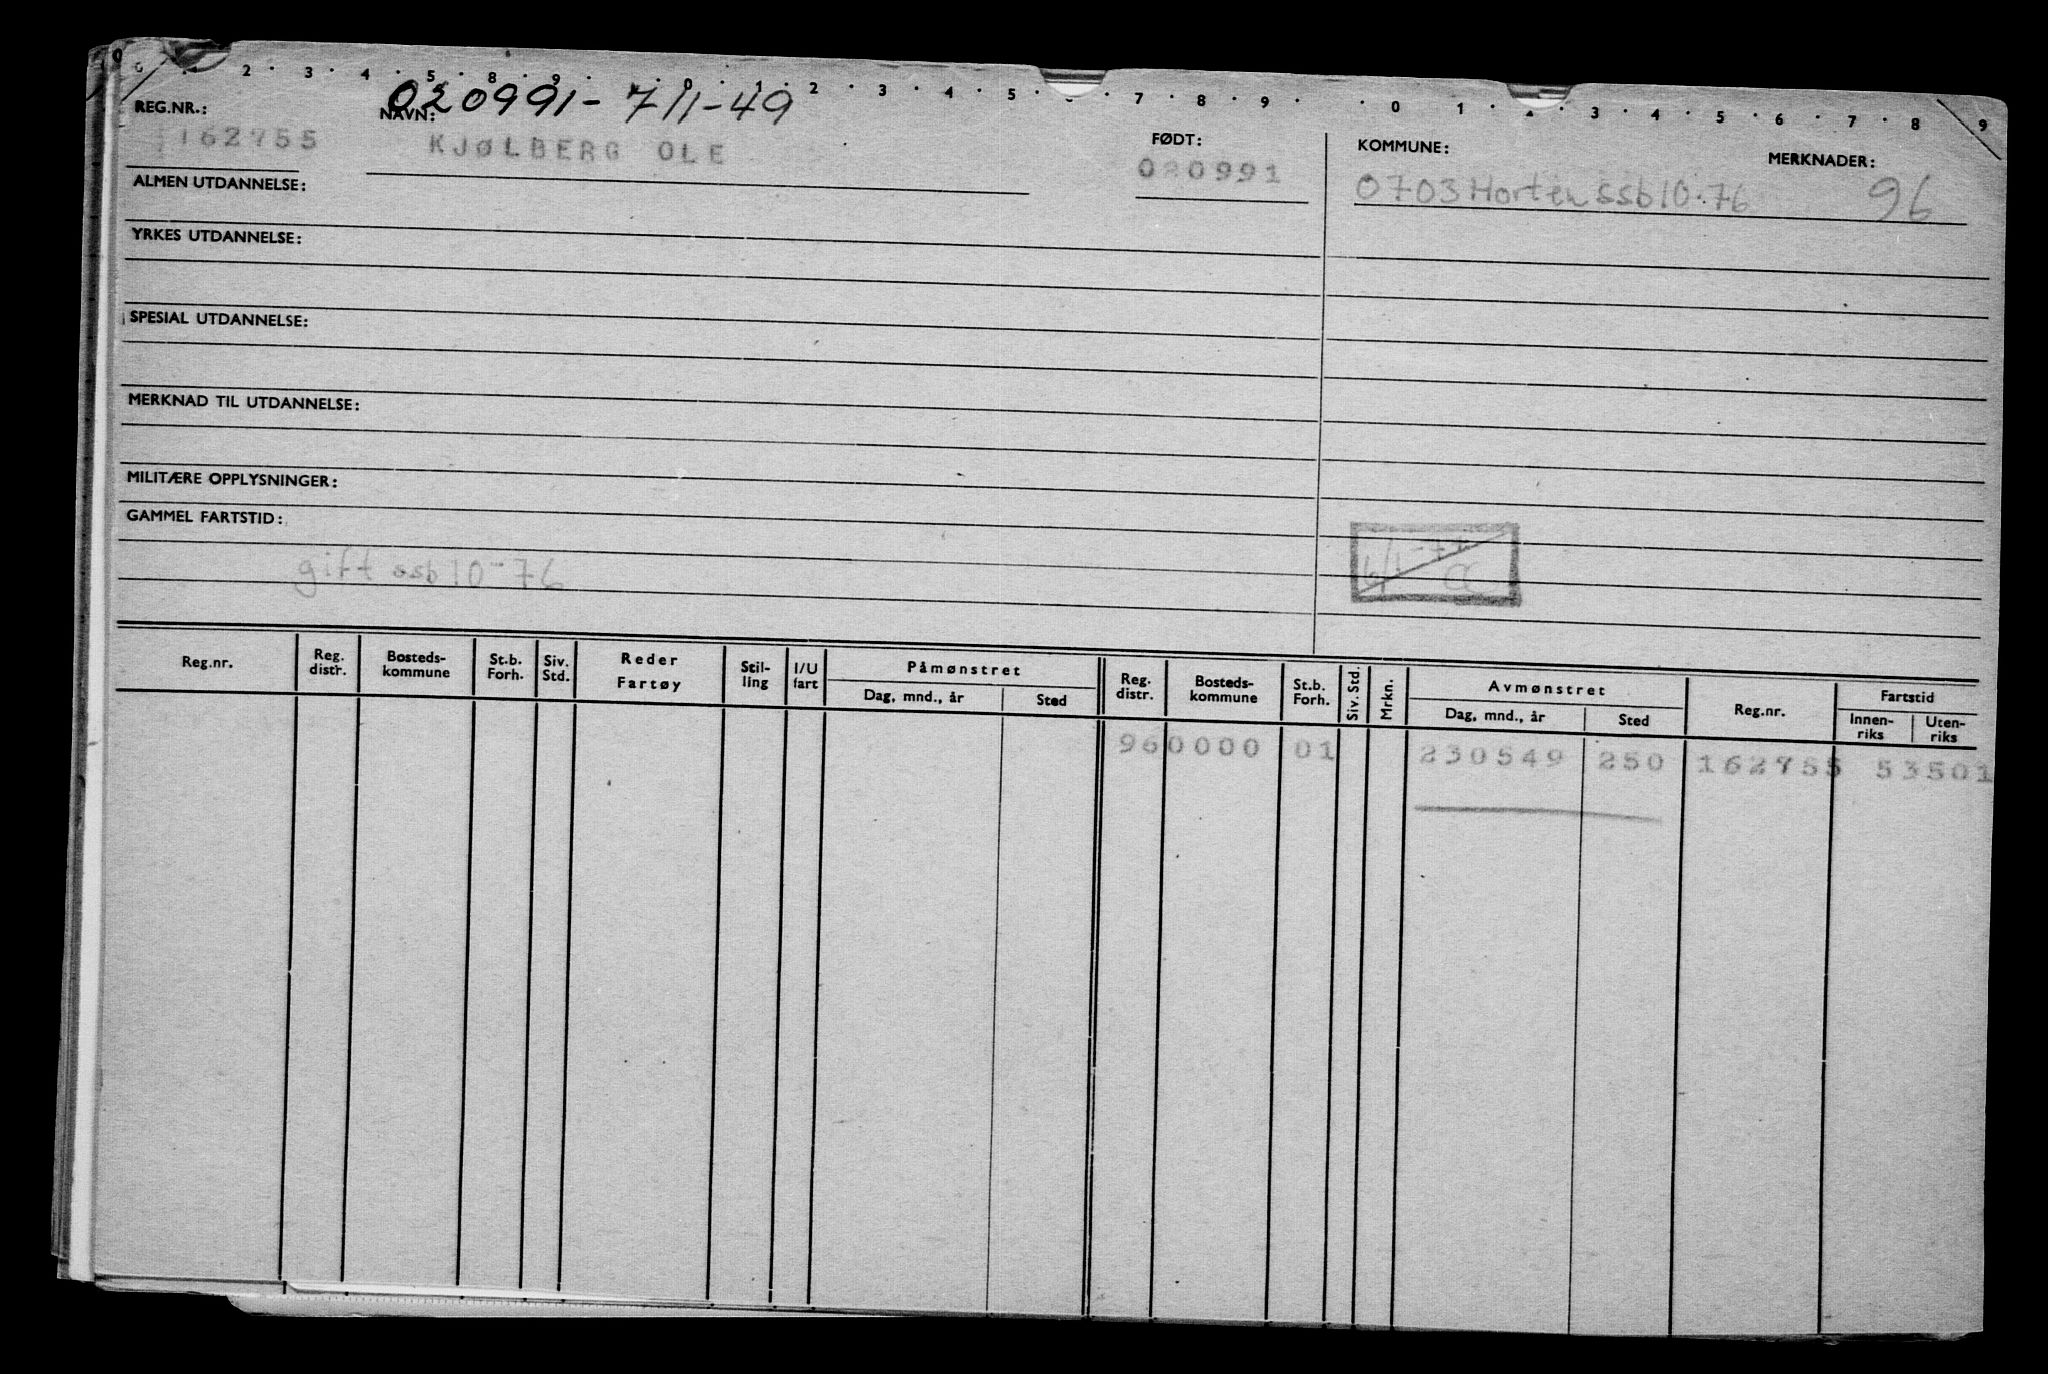 0 2 3 4 5 8 9 0 1 2 3 4 5 7 8 9 0 1 3 4 5 6 7 8 9
020991-7/1-49
REG.NR.: NAVN: FØDT: KOMMUNE: MERKNADER:
162755 KJØLBERG OLE 020991 0703 Horten ssb 10.76 96
ALMEN UTDANNELSE:
YRKES UTDANNELSE:
SPESIAL UTDANNELSE:
MERKNAD TIL UTDANNELSE:
MILITÆRE OPPLYSNINGER:
GAMMEL FARTSTID:
gift ssb 10-76
6/1-77
Reg.nr. Reg. distr. Bosteds-kommune St.b. Forh. Siv. Std. Reder Fartøy Stil-ling I/U fart Påmønstret Dag, mnd., år Sted Reg. distr. Bosteds-kommune St.b. Forh. Siv. Std. Mrkn. Avmønstret Dag, mnd., år Sted Reg.nr. Fartstid Innen-riks Uten-riks
960000 01 230549 250 162755 53501